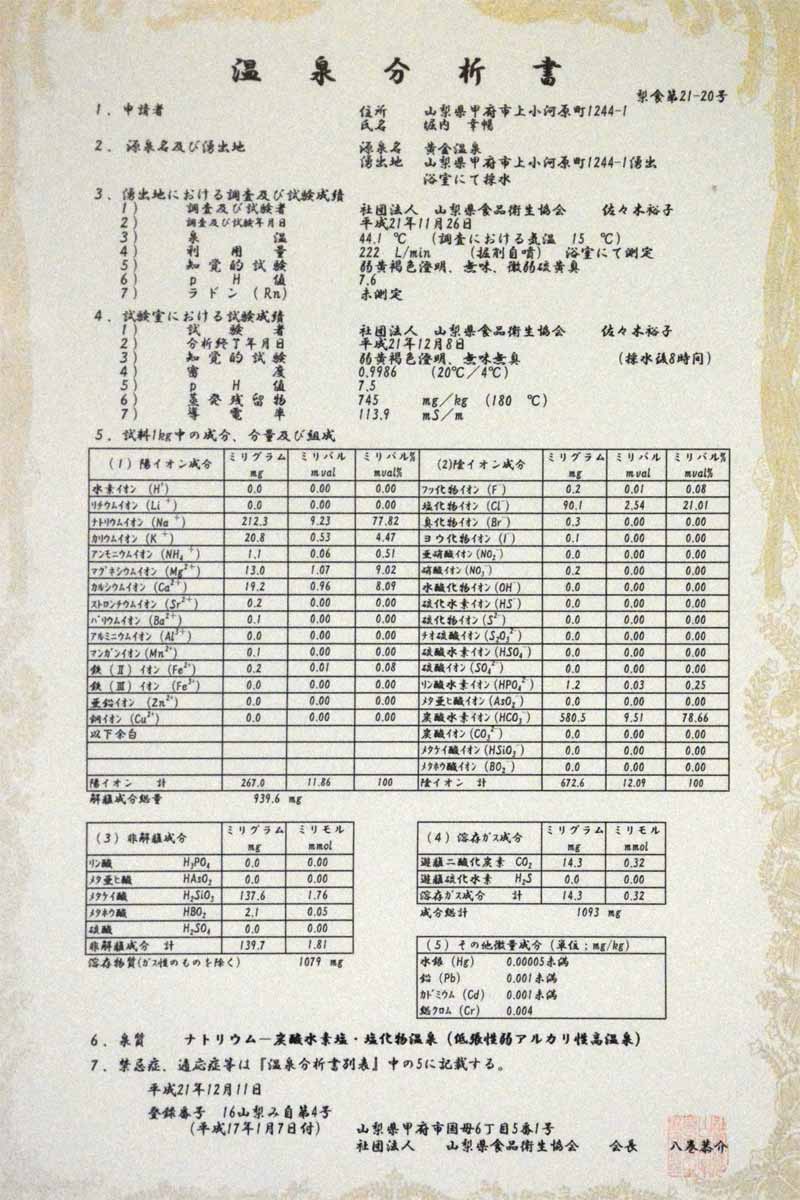 温泉分析書
梨食第21-20号
1．申請者 住所 山梨県甲府市上小河原町1244-1
氏名 堀内 幸暢
2．源泉名及び湧出地 源泉名 黄金温泉
湧出地 山梨県甲府市上小河原町1244-1湧出
浴室にて採水
3．湧出地における調査及び試験成績
1) 調査及び試験者 社団法人 山梨県食品衛生協会 佐々木裕子
2) 調査及び試験年月日 平成21年11月26日
3) 泉温 44.1 ℃ (調査における気温 15 ℃)
4) 利用量 222 L/min (掘削自噴) 浴室にて測定
5) 知覚的試験 弱黄褐色澄明、無味、微弱硫黄臭
6) pH値 7.6
7) ラドン (Rn) 未測定
4．試験室における試験成績
1) 試験者 社団法人 山梨県食品衛生協会 佐々木裕子
2) 分析終了年月日 平成21年12月8日
3) 知覚的試験 弱黄褐色澄明、無味無臭 (採水後8時間)
4) 密度 0.9986 (20℃/4℃)
5) pH値 7.5
6)蒸発残留物 745 mg/kg (180 ℃)
7) 導電率 113.9 mS/m
5．試料1kg中の成分、分量及び組成
(1) 陽イオン成分 ミリグラム mg ミリバル mval ミリバル% mval% (2)陰イオン成分 ミリグラム mg ミリバル mval ミリバル% mval%
水素イオン (H⁺) 0.0 0.00 0.00 フッ化物イオン (F⁻) 0.2 0.01 0.08
リチウムイオン (Li⁺) 0.0 0.00 0.00 塩化物イオン (Cl⁻) 90.1 2.54 21.01
ナトリウムイオン (Na⁺) 212.3 9.23 77.82 臭化物イオン (Br⁻) 0.3 0.00 0.00
カリウムイオン (K⁺) 20.8 0.53 4.47 ヨウ化物イオン (I⁻) 0.1 0.00 0.00
アンモニウムイオン (NH₄⁺) 1.1 0.06 0.51 亜硝酸イオン (NO₂⁻) 0.0 0.00 0.00
マグネシウムイオン (Mg²⁺) 13.0 1.07 9.02 硝酸イオン (NO₃⁻) 0.2 0.00 0.00
カルシウムイオン (Ca²⁺) 19.2 0.96 8.09 水酸化物イオン (OH⁻) 0.0 0.00 0.00
ストロンチウムイオン (Sr²⁺) 0.2 0.00 0.00 硫化水素イオン (HS⁻) 0.0 0.00 0.00
バリウムイオン (Ba²⁺) 0.1 0.00 0.00 硫化物イオン (S²⁻) 0.0 0.00 0.00
アルミニウムイオン (Al³⁺) 0.0 0.00 0.00 チオ硫酸イオン (S₂O₃²⁻) 0.0 0.00 0.00
マンガンイオン (Mn²⁺) 0.1 0.00 0.00 硫酸水素イオン (HSO₄⁻) 0.0 0.00 0.00
鉄 (Ⅱ) イオン (Fe²⁺) 0.2 0.01 0.08 硫酸イオン (SO₄²⁻) 0.0 0.00 0.00
鉄 (Ⅲ) イオン (Fe³⁺) 0.0 0.00 0.00 リン酸水素イオン (HPO₄²⁻) 1.2 0.03 0.25
亜鉛イオン (Zn²⁺) 0.0 0.00 0.00 メタ亜ヒ酸イオン (AsO₂⁻) 0.0 0.00 0.00
銅イオン (Cu²⁺) 0.0 0.00 0.00 炭酸水素イオン (HCO₃⁻) 580.5 9.51 78.66
以下余白 炭酸イオン (CO₃²⁻) 0.0 0.00 0.00
メタケイ酸イオン (HSiO₃⁻) 0.0 0.00 0.00
メタホウ酸イオン (BO₂⁻) 0.0 0.00 0.00
陽イオン 計 267.0 11.86 100 陰イオン 計 672.6 12.09 100
解離成分総量 939.6 mg
(3) 非解離成分 ミリグラム mg ミリモル mmol
リン酸 H₃PO₄ 0.0 0.00
メタ亜ヒ酸 HAsO₂ 0.0 0.00
メタケイ酸 H₂SiO₃ 137.6 1.76
メタホウ酸 HBO₂ 2.1 0.05
硫酸 H₂SO₄ 0.0 0.00
非解離成分 計 139.7 1.81
溶存物質(ガス性のものを除く) 1079 mg
(4) 溶存ガス成分 ミリグラム mg ミリモル mmol
遊離二酸化炭素 CO₂ 14.3 0.32
遊離硫化水素 H₂S 0.0 0.00
溶存ガス成分 計 14.3 0.32
成分総計 1093 mg
(5) その他微量成分 (単位；mg/kg)
水銀 (Hg) 0.00005未満
鉛 (Pb) 0.001未満
カドミウム (Cd) 0.001未満
総クロム (Cr) 0.004
6．泉質 ナトリウム－炭酸水素塩・塩化物温泉 (低張性弱アルカリ性高温泉)
7．禁忌症、適応症等は『温泉分析書別表』中の5に記載する。
平成21年12月11日
登録番号 16山梨み自第4号
(平成17年1月7日付) 山梨県甲府市国母6丁目5番1号
社団法人 山梨県食品衛生協会 会長 八巻恭介